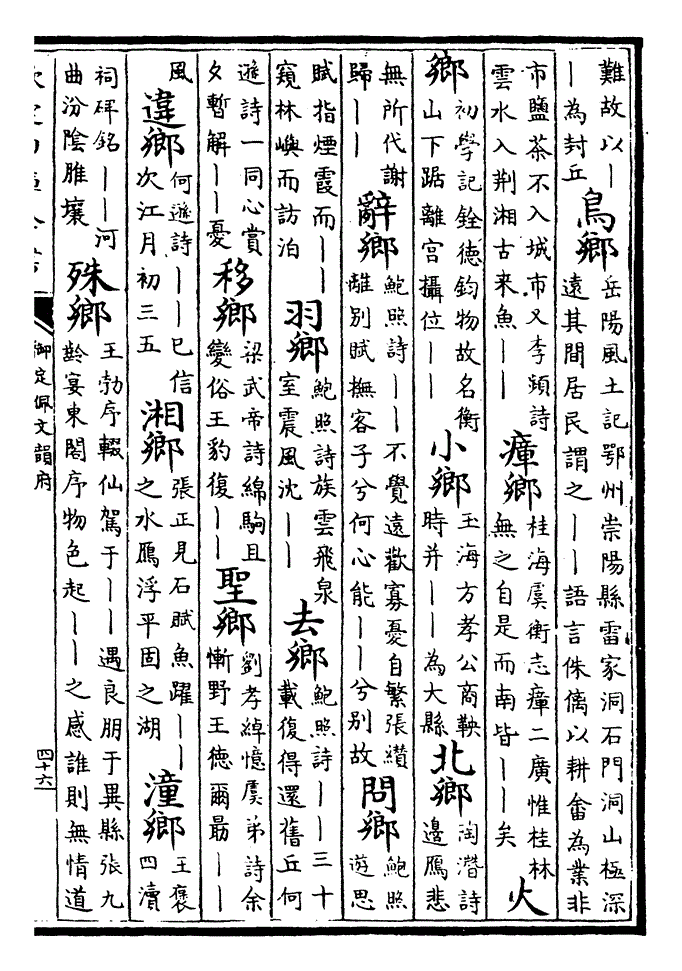 難故以丨
丨為封丘
鳥鄉
岳陽風土記鄂州崇陽縣雷家洞石門洞山極深
遠其間居民謂之丨丨語言侏㒧以耕畬為業非
市鹽茶不入城市又李頻詩
雲水入荆湘古來魚丨丨
瘴鄉
桂海虞衡志瘴二廣惟桂林
無之自是而南皆丨丨矣
火
鄉
初學記銓德鈞物故名衡
山下踞離宫攝位丨丨
小鄉
玉海方孝公商鞅
時并丨丨為大縣
北鄉
陶潛詩
邊鴈悲
無所代謝
歸丨丨
辭鄉
鮑照詩丨丨不覺遠歡寡憂自繁張纘
離别賦撫客子兮何心能丨丨兮别故
問鄉
鮑照
遊思
賦指煙霞而丨丨
窺林嶼而訪泊
羽鄉
鮑照詩族雲飛泉
室震風沈丨丨
去鄉
鮑照詩丨丨三十
載復得還舊丘何
遜詩一同心賞
夕暫解丨丨憂
移鄉
梁武帝詩綿駒且
變俗王豹復丨丨
聖鄉
劉孝綽憶虞弟詩余
慚野王德爾勗丨丨
風
違鄉
何遜詩丨丨已信
次江月初三五
湘鄉
張正見石賦魚躍丨丨
之水鴈浮平固之湖
潼鄉
王褒
四瀆
祠碑銘丨丨河
曲汾陰脽壤
殊鄉
王勃序輟仙駕于丨丨遇良朋于異縣張九
齡宴東閣序物色起丨丨之感誰則無情道
御定佩文韻府
四十六